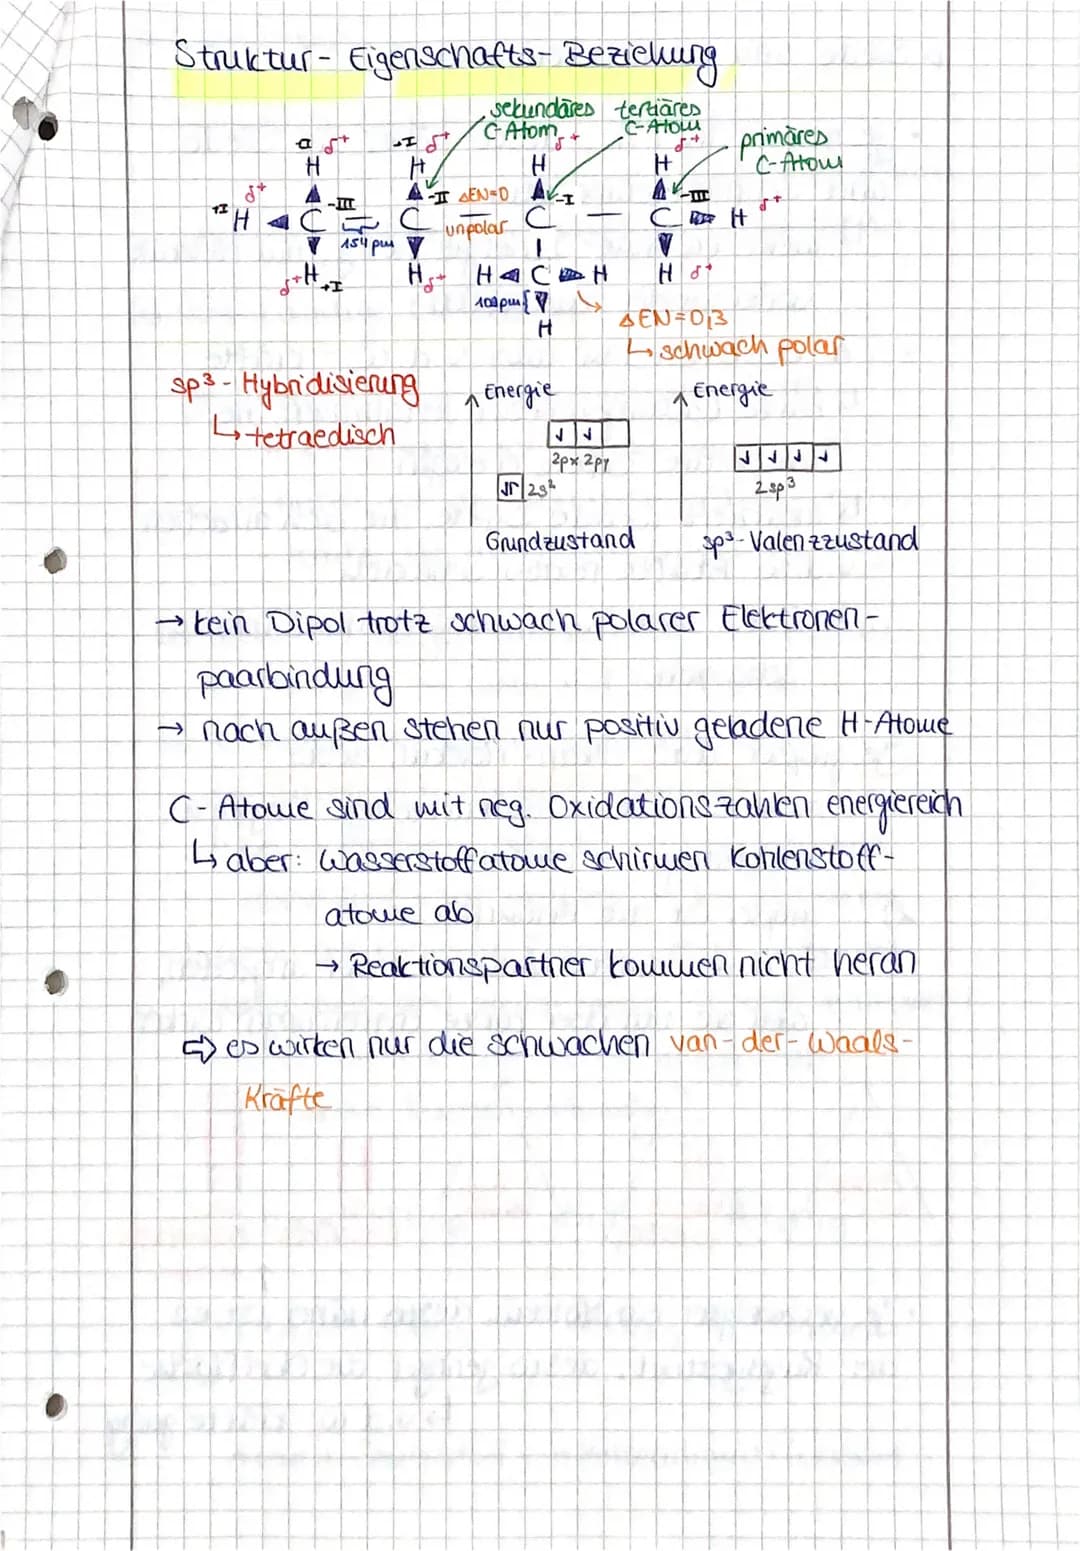 Struktur - Eigenschafts - Beziehung
sekundäres tertiäres
C-Atom C-Atom
primäres
C-Atom
δ+ +I δ+ δ+ δ+
H H H H
δ+ -III -II ΔEN=0 -I -III δ+
+I H C C unpolar C — C H
154 pm
δ+ H +I H δ+ H C H H δ+
109pm{
H
ΔEN=0,3
↳ schwach polar
sp³ - Hybridisierung
↳ tetraedisch
Energie Energie
2px 2py
2s²
2sp³
Grundzustand sp³-Valenzzustand
→ kein Dipol trotz schwach polarer Elektronen-
paarbindung
→ nach außen stehen nur positiv geladene H-Atome
C-Atome sind mit neg. Oxidationszahlen energiereich
↳ aber: Wasserstoffatome schirmen Kohlenstoff-
atome ab
→ Reaktionspartner kommen nicht heran
⇒ es wirken nur die schwachen van-der-Waals-
Kräfte